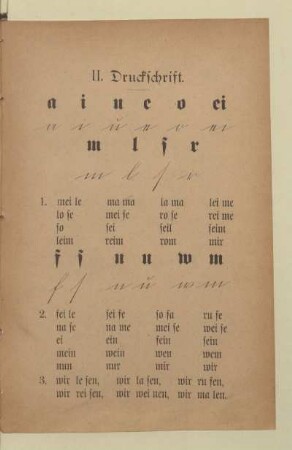 II. Druckschrift.
a i u e o ei
a i u e o ei
m l s r
m l s r
1. mei le ma ma la ma lei me
lo se mei se ro se rei me
so sei seil seim
leim reim rom mir
f ſ n u w m
f ſ n u w m
2. fei le sei fe so fa ru fe
na se na me mei se wei se
ei ein fein sein
mein wein wen wem
nun nur mir wir
3. wir le sen, wir la sen, wir ru fen,
wir rei sen, wir wei nen, wir ma len.